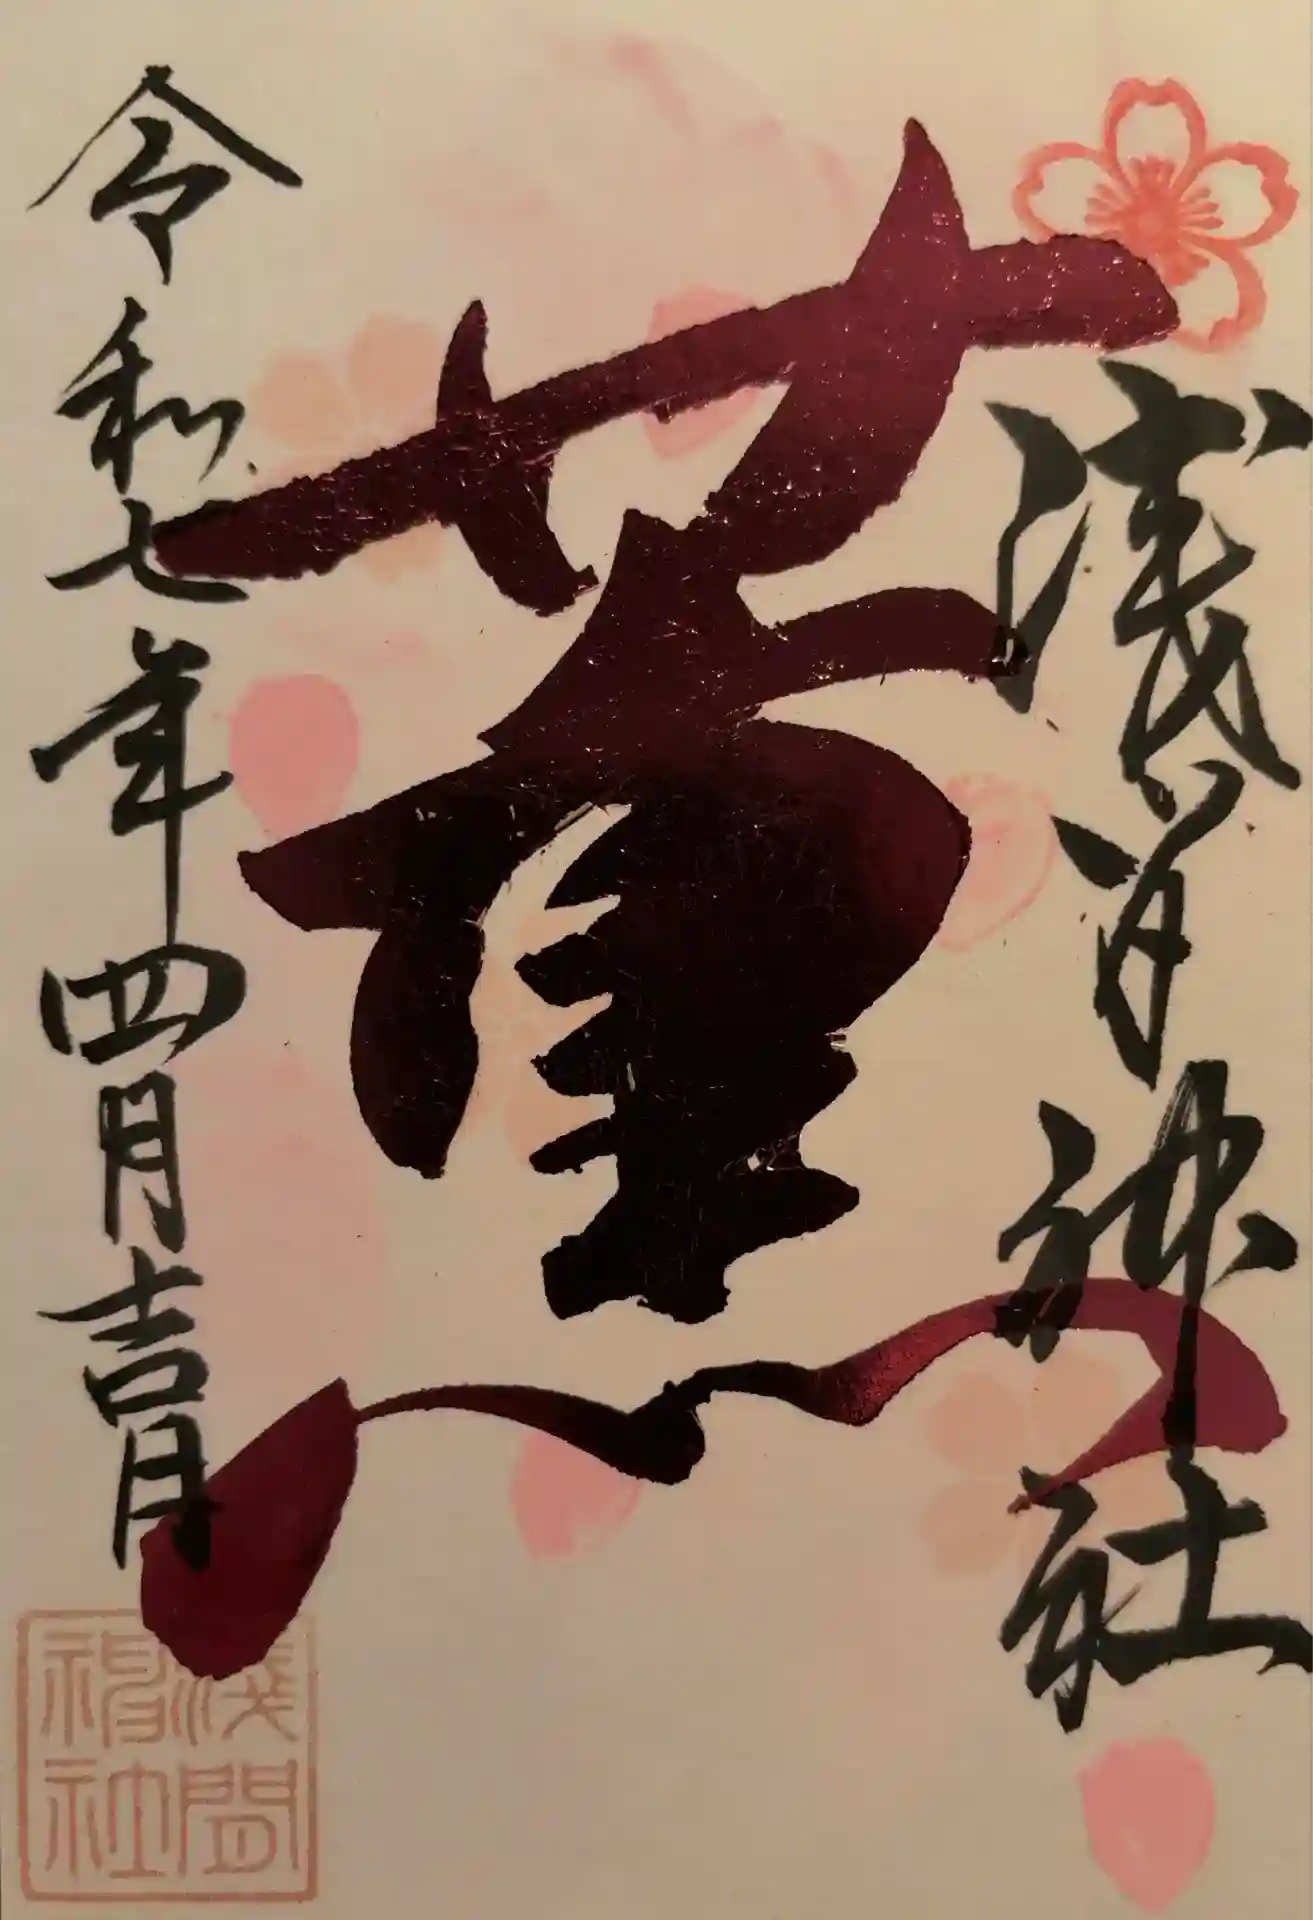 浅間神社
薫
令和七年四月吉日
浅間
神社